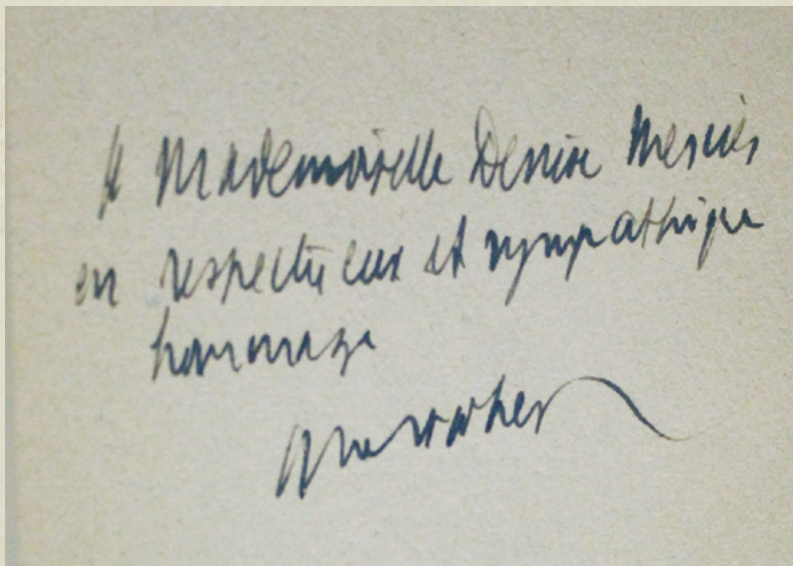 A Mademoiselle Denise Mercier
en respectueux et sympathique
hommage